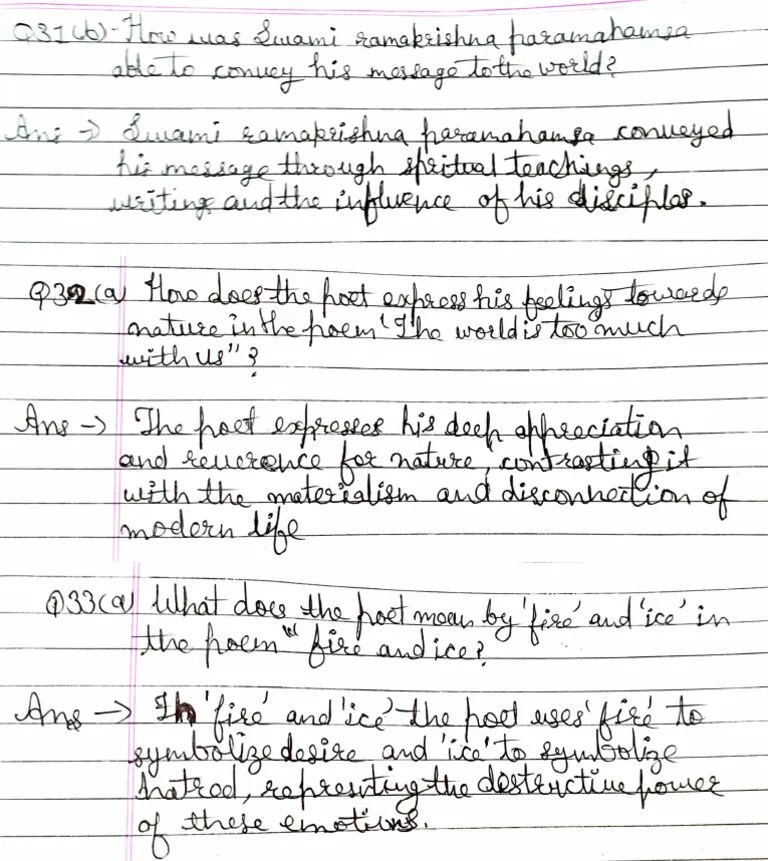 Q31(b)- How was Swami ramakrishna paramahamsa
able to convey his message to the world?
Ans → Swami ramakrishna paramahamsa conveyed
his message through spritual teachings,
writings and the influence of his disciples.
Q32(a) How does the poet express his feelings towards
nature in the poem "The world is too much
with us"?
Ans → The poet expresses his deep appreciation
and reverence for nature, contrasting it
with the materialism and disconnection of
modern life
Q33(a) What does the poet mean by 'fire' and 'ice' in
the poem " fire and ice?
Ans → In 'fire' and 'ice' the poet uses 'fire' to
symbolize desire and 'ice' to symbolize
hatred, represnting the destructive power
of these emotions.